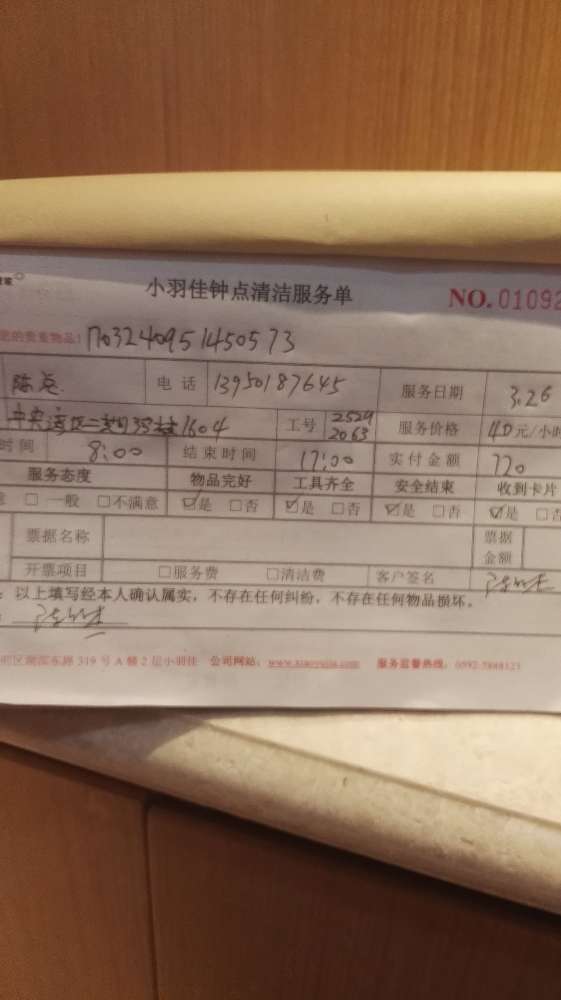 小羽佳钟点清洁服务单 NO.01092
您的贵重物品! 1703240951450573
陈 电话 13950187645 服务日期 3.26
中央湾区二期33栋1604 工号 2529 2063 服务价格 40元/小时
时间 8:00 结束时间 17:00 实付金额 720
服务态度 物品完好 工具齐全 安全结束 收到卡片
意 □一般 □不满意 ☑是 □否 ☑是 □否 ☑是 □否 ☑是 □否
票据名称 票据金额
开票项目 □服务费 □清洁费 客户签名
:以上填写经本人确认属实,不存在任何纠纷,不存在任何物品损坏。
319号A幢2层小羽佳 公司网站: 服务监督热线: